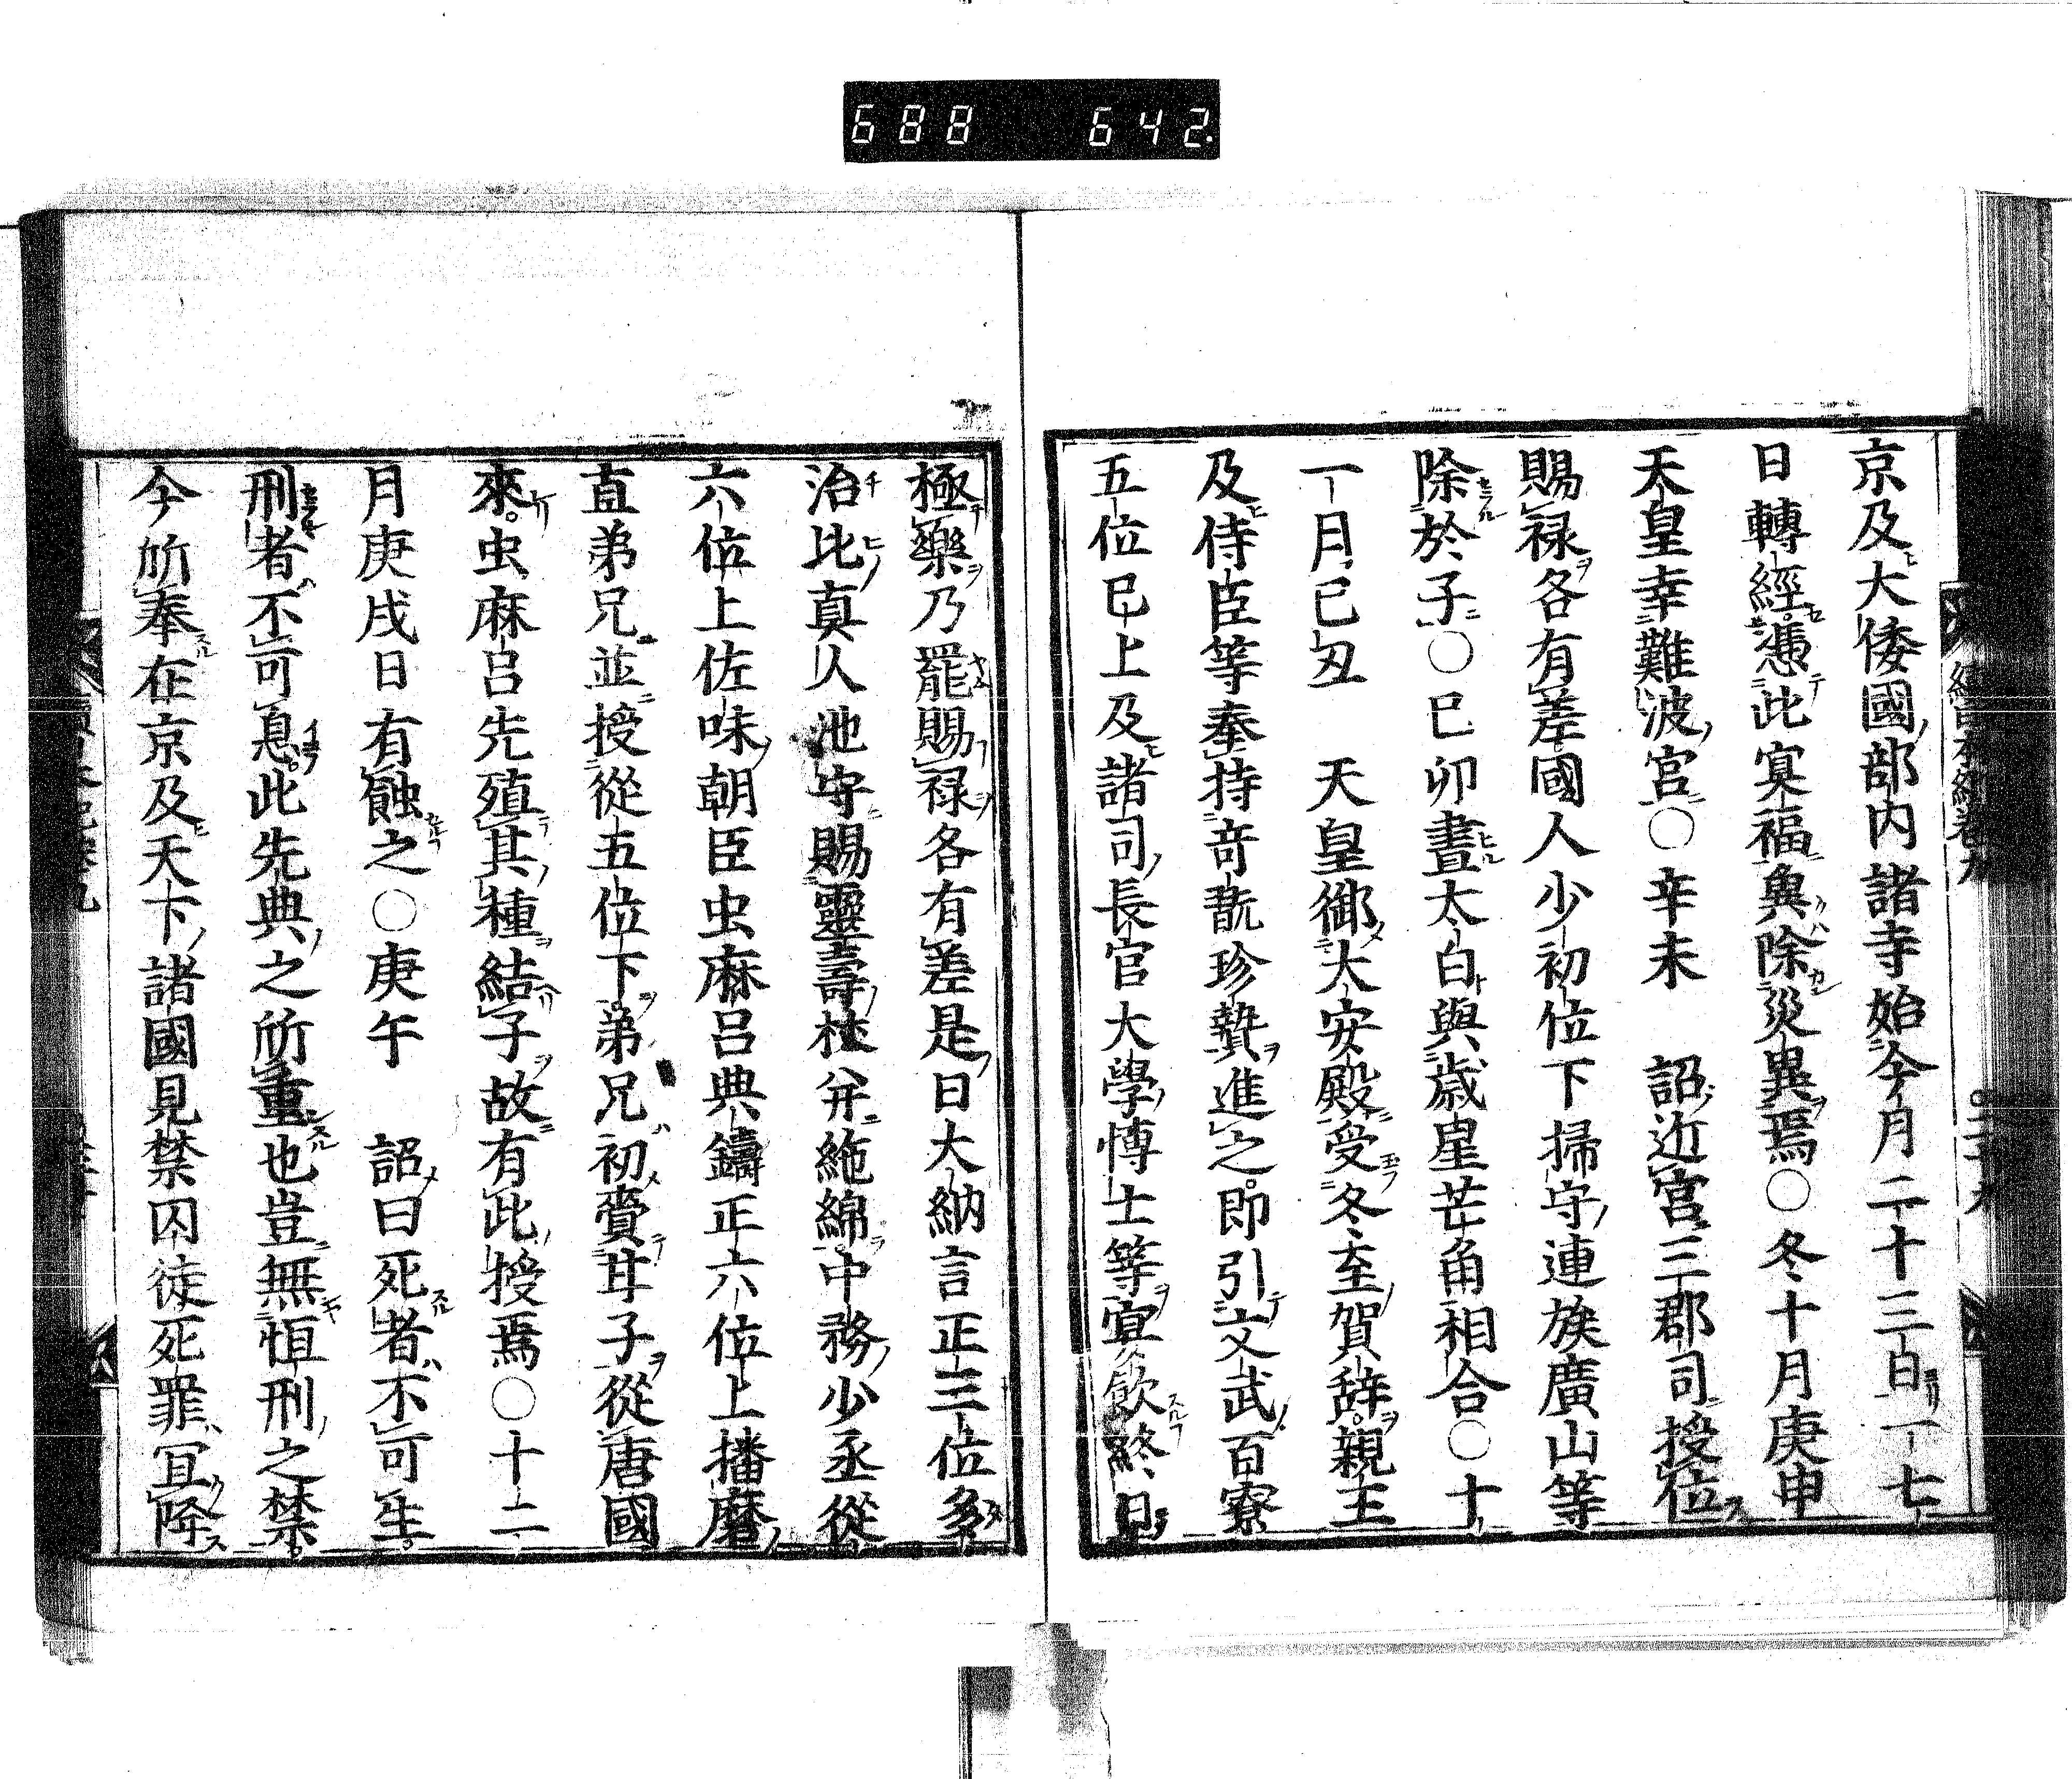 688 642
京及大倭國部内諸寺始今月二十三日一七
日轉經憑此冥福兾除災異焉○冬十月庚申
天皇幸難波宮○辛未 詔近宮三郡司授位
賜禄各有差國人少初位下掃守連族廣山等
除於子○巳卯晝太白與歳星芒角相合○十
一月巳丑 天皇御大安殿受冬至賀辞親王
及侍臣等奉持奇翫珍贄進之即引文武百寮
五位巳上及諸司長官大學愽士等宴飲終日
極樂乃罷賜禄各有差是日大納言正三位多
治比真人池守賜靈壽杖并絁綿中務少丞從
六位上佐味朝臣虫麻呂典鑄正六位上播磨
直弟兄並授從五位下弟兄初賷甘子從唐國
來虫麻呂先殖其種結子故有此授焉○十二
月庚戌日有蝕之○庚午 詔曰死者不可生
刑者不可息此先典之所重也豈無恒刑之禁
今所奉在京及天下諸國見禁囚徒死罪冝降